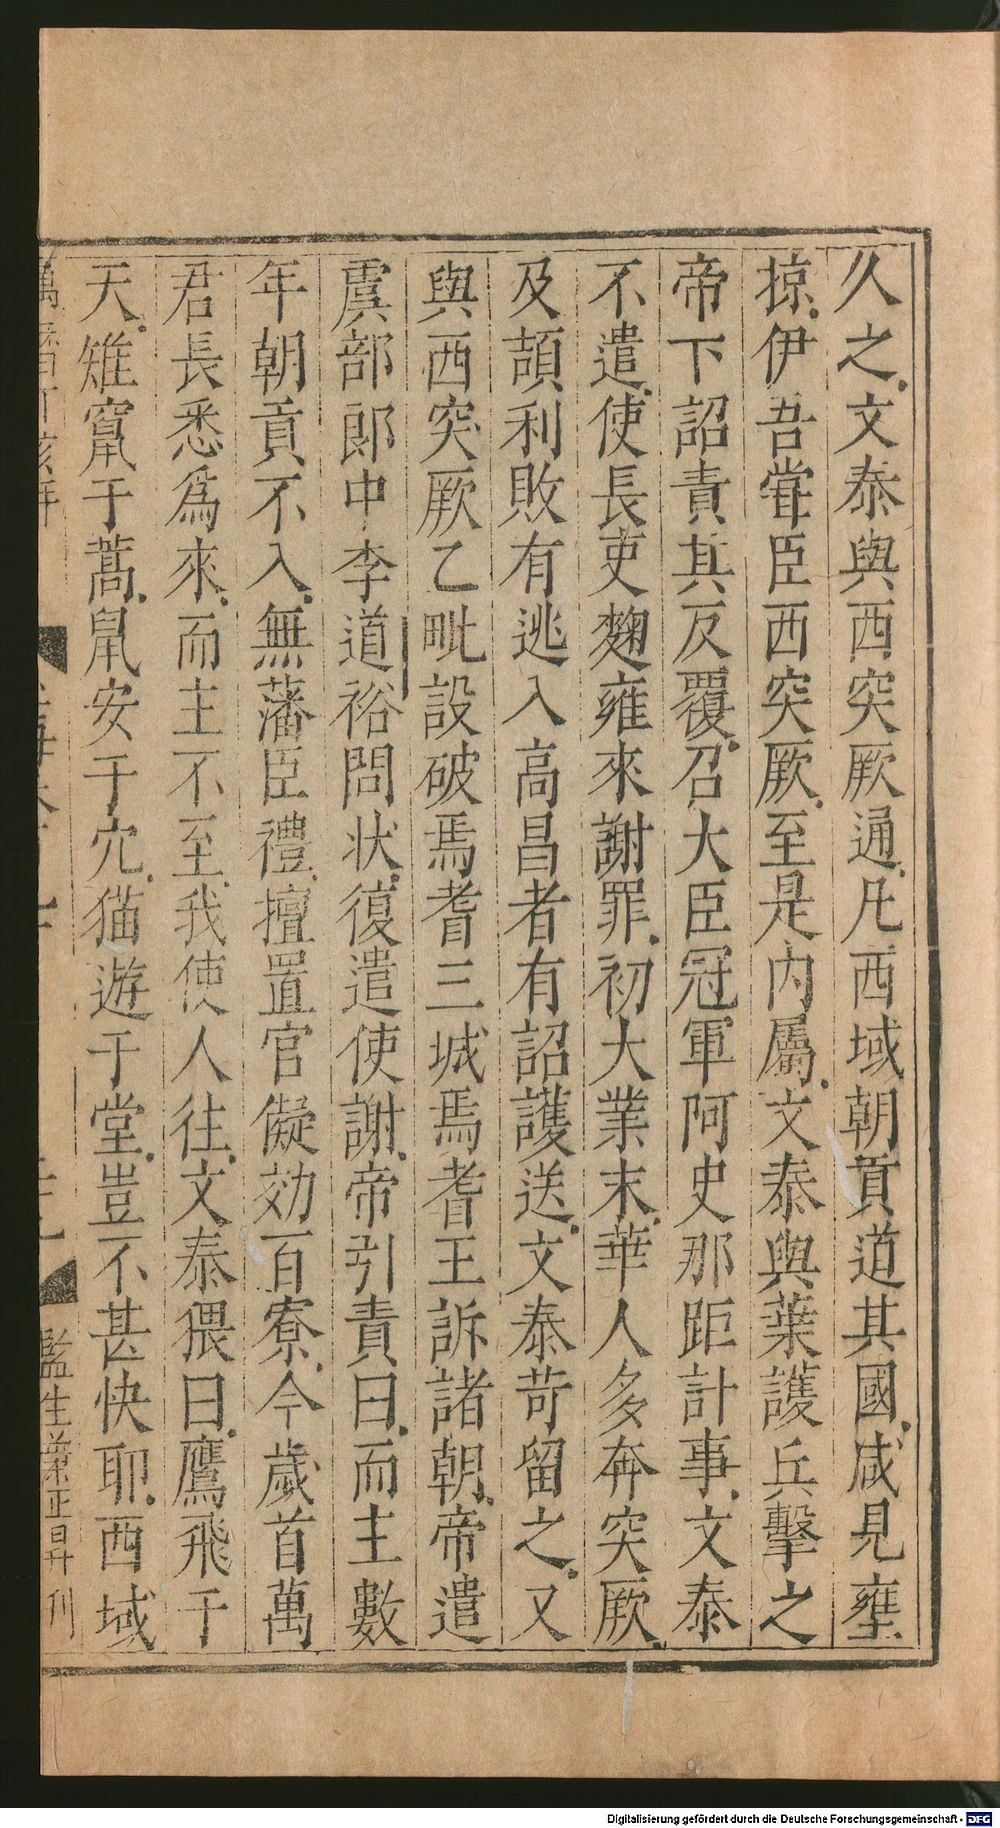 久之文泰與西突厥通凡西域朝貢道其國咸見壅
掠伊吾甞臣西突厥至是内屬文泰與葉護兵擊之
帝下詔責其反覆召大臣冠軍阿史那距計事文泰
不遣使長吏麴雍來謝罪初大業末華人多奔突厥
及頡利敗有逃入高昌者有詔護送文泰苛留之又
與西突厥乙毗設破焉耆三城焉耆王訴諸朝帝遣
虞部郎中李道裕問狀復遣使謝帝引責曰而主數
年朝貢不入無藩臣禮擅置官儗効百寮今歲首萬
君長悉爲來而主不至我使人往文泰猥曰鷹飛于
天雉竄于蒿鼠安于穴猫遊于堂豈不甚快耶西域
監生 正昇刊
Digitalisierung gefördert durch die Deutsche Forschungsgemeinschaft - DFG